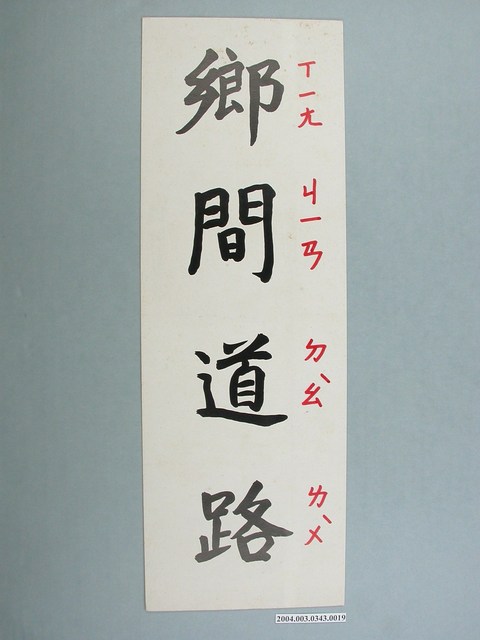 鄉間道路
ㄒㄧㄤ ㄐㄧㄢ ㄉㄠˋ ㄌㄨˋ
2004.003.0343.0019